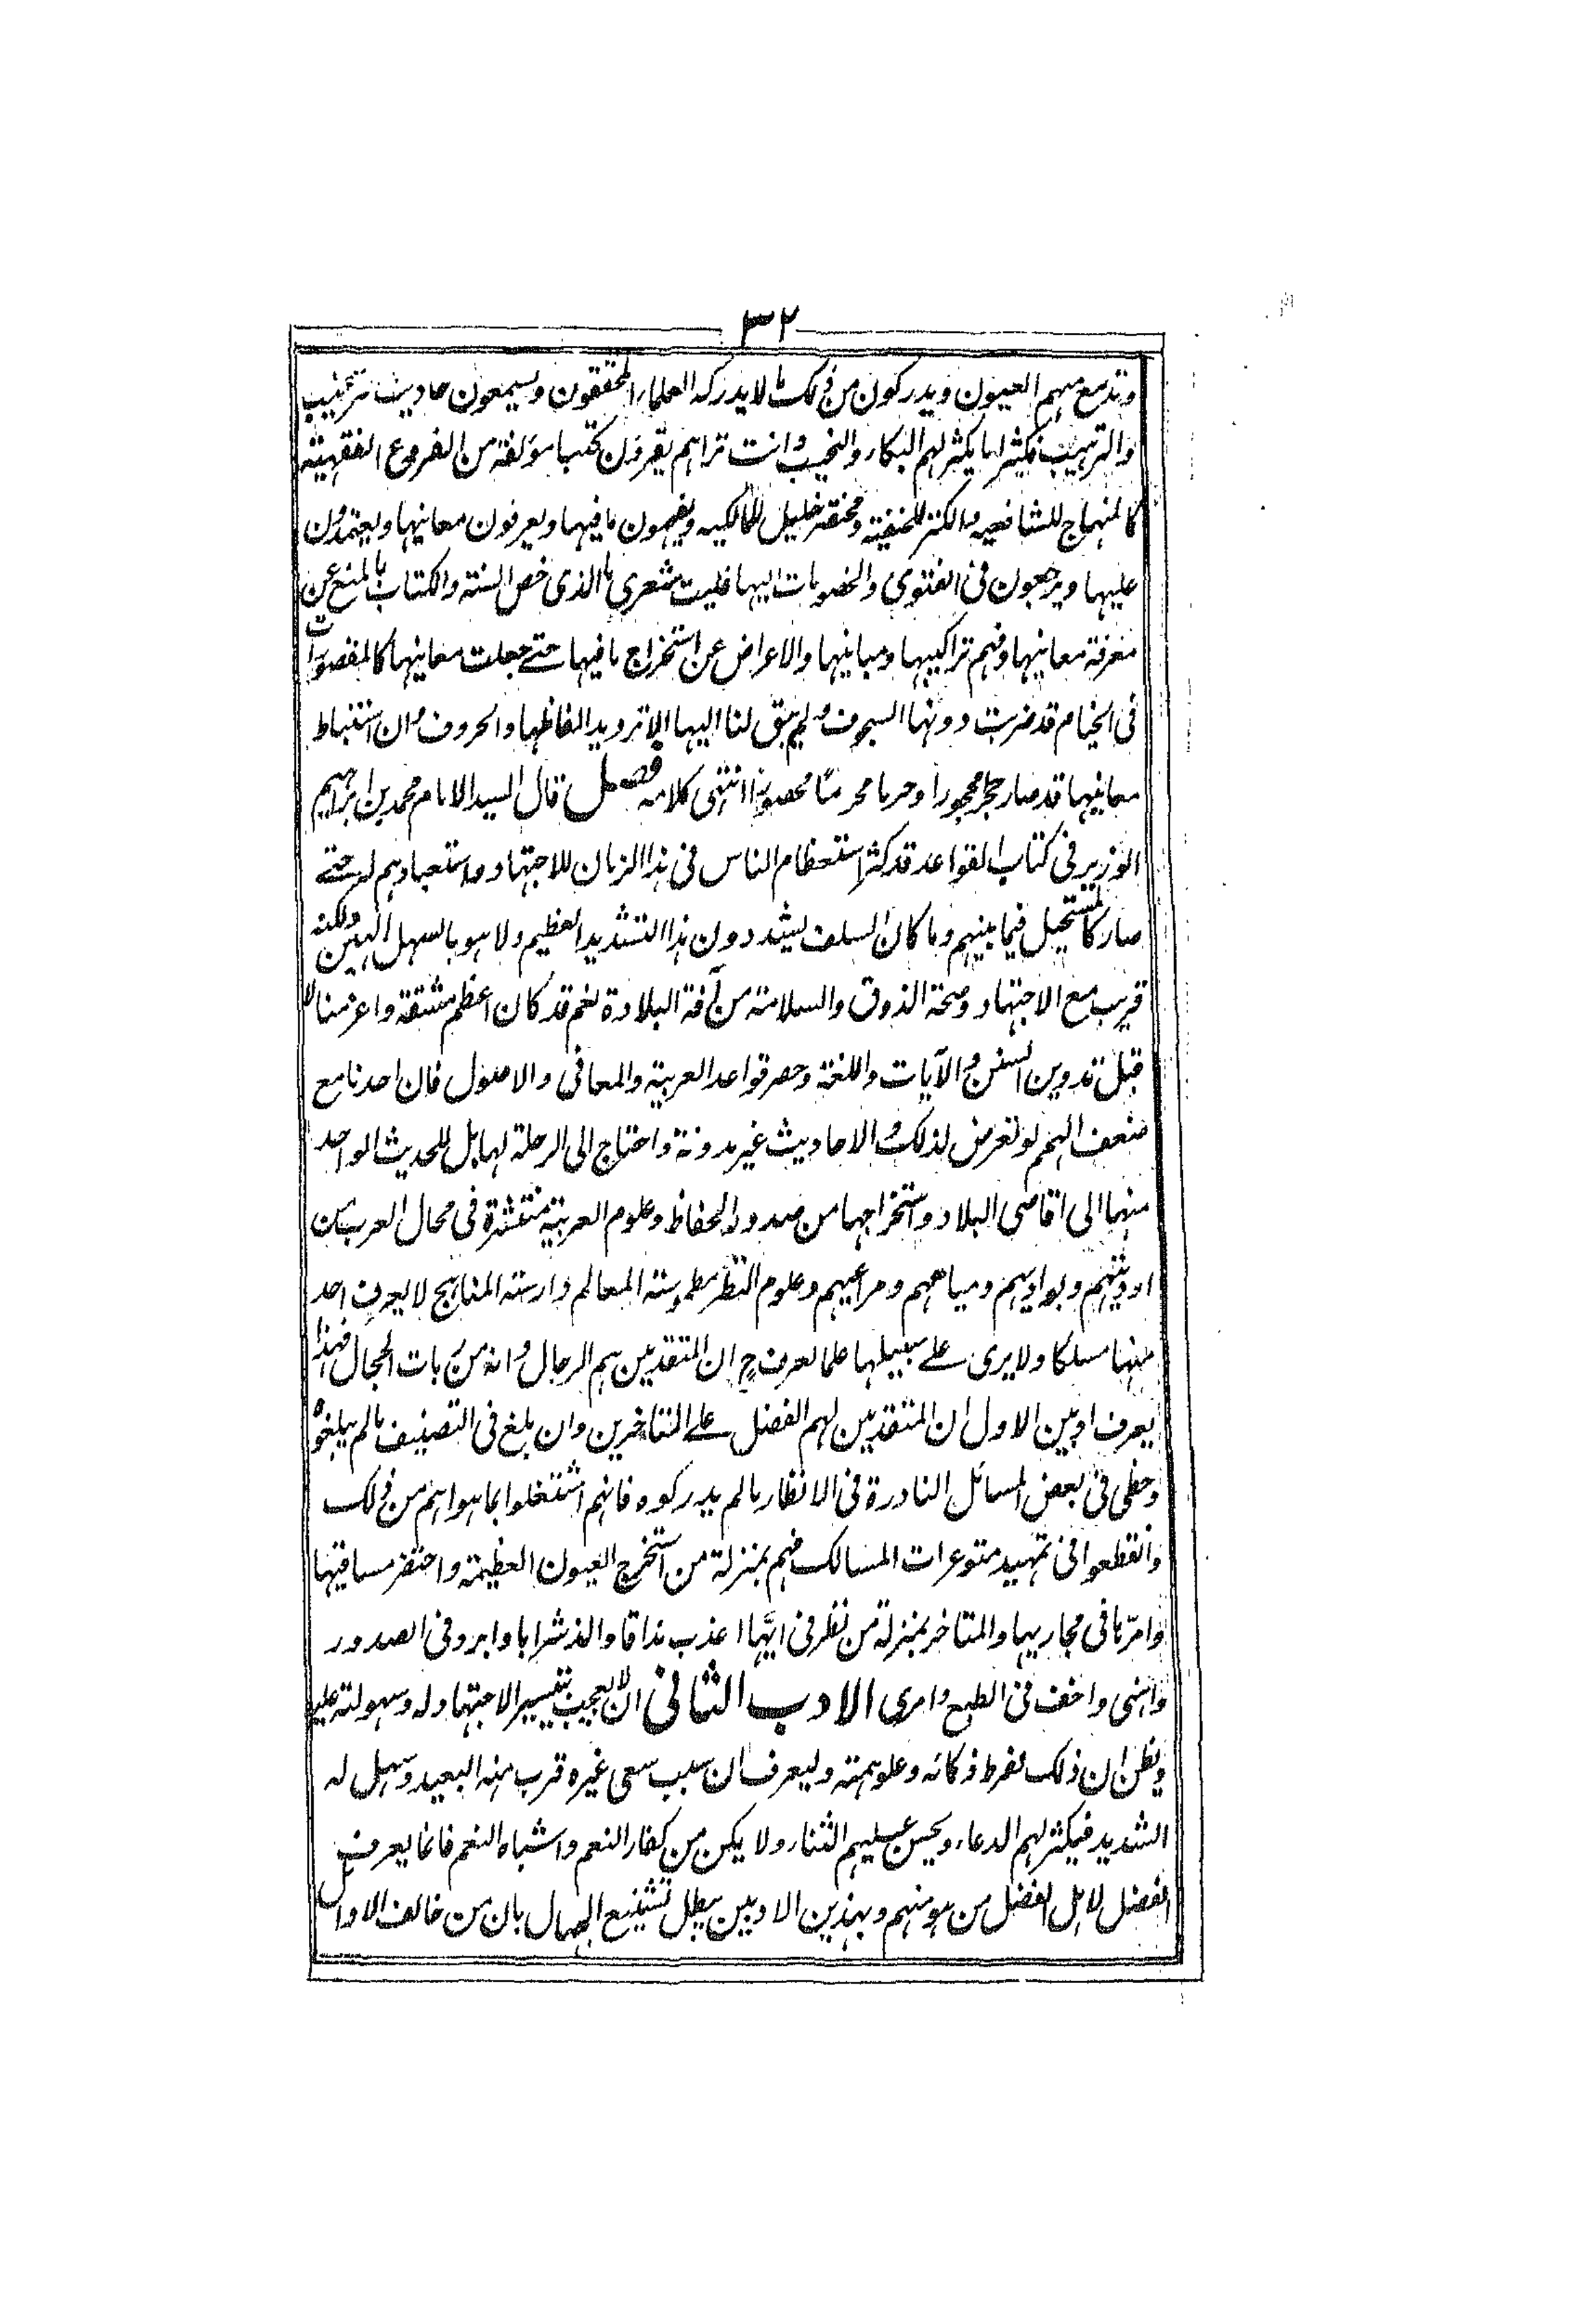 ٣٢
وتدمع منهم العيون ويدركون من ذلك ما لا يدركه العلماء المحققون ويسمعون احاديث الترغيب
والترهيب فيكثر لها يكثر لهم البكاء والنحيب وانت تراهم يقرؤن كتبا مؤلفة من الفروع الفقهية
كالمنهاج للشافعيه والكنز للحنفية ومختصر خليل للمالكيه ويفهمون ما فيها ويعرفون معانيها ويعتمدون
عليها ويرجعون فى الفتوى والخصومات اليها فليت شعري ما الذى خص السنة والكتاب بالمنع عن
معرفة معانيها وفهم تراكيبها ومبانيها والاعراض عن استخراج ما فيها حتے جعلت معانيها كالمقصورات
فى الخيام قد ضربت دونها السجوف ولم يبق لنا اليها الا ترويد الفاظها والحروف وان استنباط
معانيها قد صار حجرا محجورا وحرما محرما محصورا انتهى كلامه فصل قال السيد الامام محمد بن ابراهيم
الوزير فى كتاب القواعد قد كثر استعظام الناس فى هذا الزمان للاجتهاد واستبعادهم له حتے
صار كالمستحيل فيما بينهم وما كان السلف يشددون هذا التشديد العظيم ولا هو بالسهل الهين ولكنه
قريب مع الاجتهاد وصحة الذوق والسلامة من آفة البلادة نعم قد كان اعظم مشقة واعز منالا
قبل تدوين السنن والآيات واللغة وحصر قواعد العربية والمعانى والاصول فان احدنا مع
ضعف الهمم لو تعرض لذلك والاحاديث غير مدونة واحتاج الى الرحلة لها بل للحديث الواحد
منها الى اقاصى البلاد واستخراجها من صدور الحفاظ وعلوم العربية منتشرة فى محال العرب من
اوديتهم وبواديهم ومياههم ومراعيهم وعلوم النظر مطموسة المعالم دارسة المناهج لا يعرف احد
منها مسلكا ولا يرى علے سبيلها علما لعرف ح ان المتقدمين هم الرجال وانه من ربات الحجال فبهذا
يعرف ادبين الاول ان المتقدمين لهم الفضل علے المتاخرين وان بلغ فى التصنيف ما لم يبلغوه
وحظى فى بعض المسائل النادرة فى الانظار ما لم يدركوه فانهم اشتغلوا بما هو اهم من ذلك
وانقطعوا فى تمهيد متوعرات المسالك فهم بمنزلة من استخرج العيون العظيمة واحتفر مساقيها
وامرّها فى مجاريها والمتاخر بمنزلة من نظر فى ايّها اعذب مذاقا والذ شرابا وابرد فى الصدور
واهنى واخف فى الطبع وامرى الادب الثانى ان لا يعجب بتيسير الاجتهاد له وسهولته عليه
ويظن ان ذلك لفرط ذكائه وعلو همته وليعرف ان سبب سعى غيره قرب منه البعيد وسهل له
الشديد فيكثر لهم الدعاء ويحسن عليهم الثناء ولا يكن من كفار النعم واشباه النعم فانما يعرف
الفضل لاهل الفضل من هو منهم وبهذين الادبين يبطل تشنيع الجهال بان من خالف الاوائل